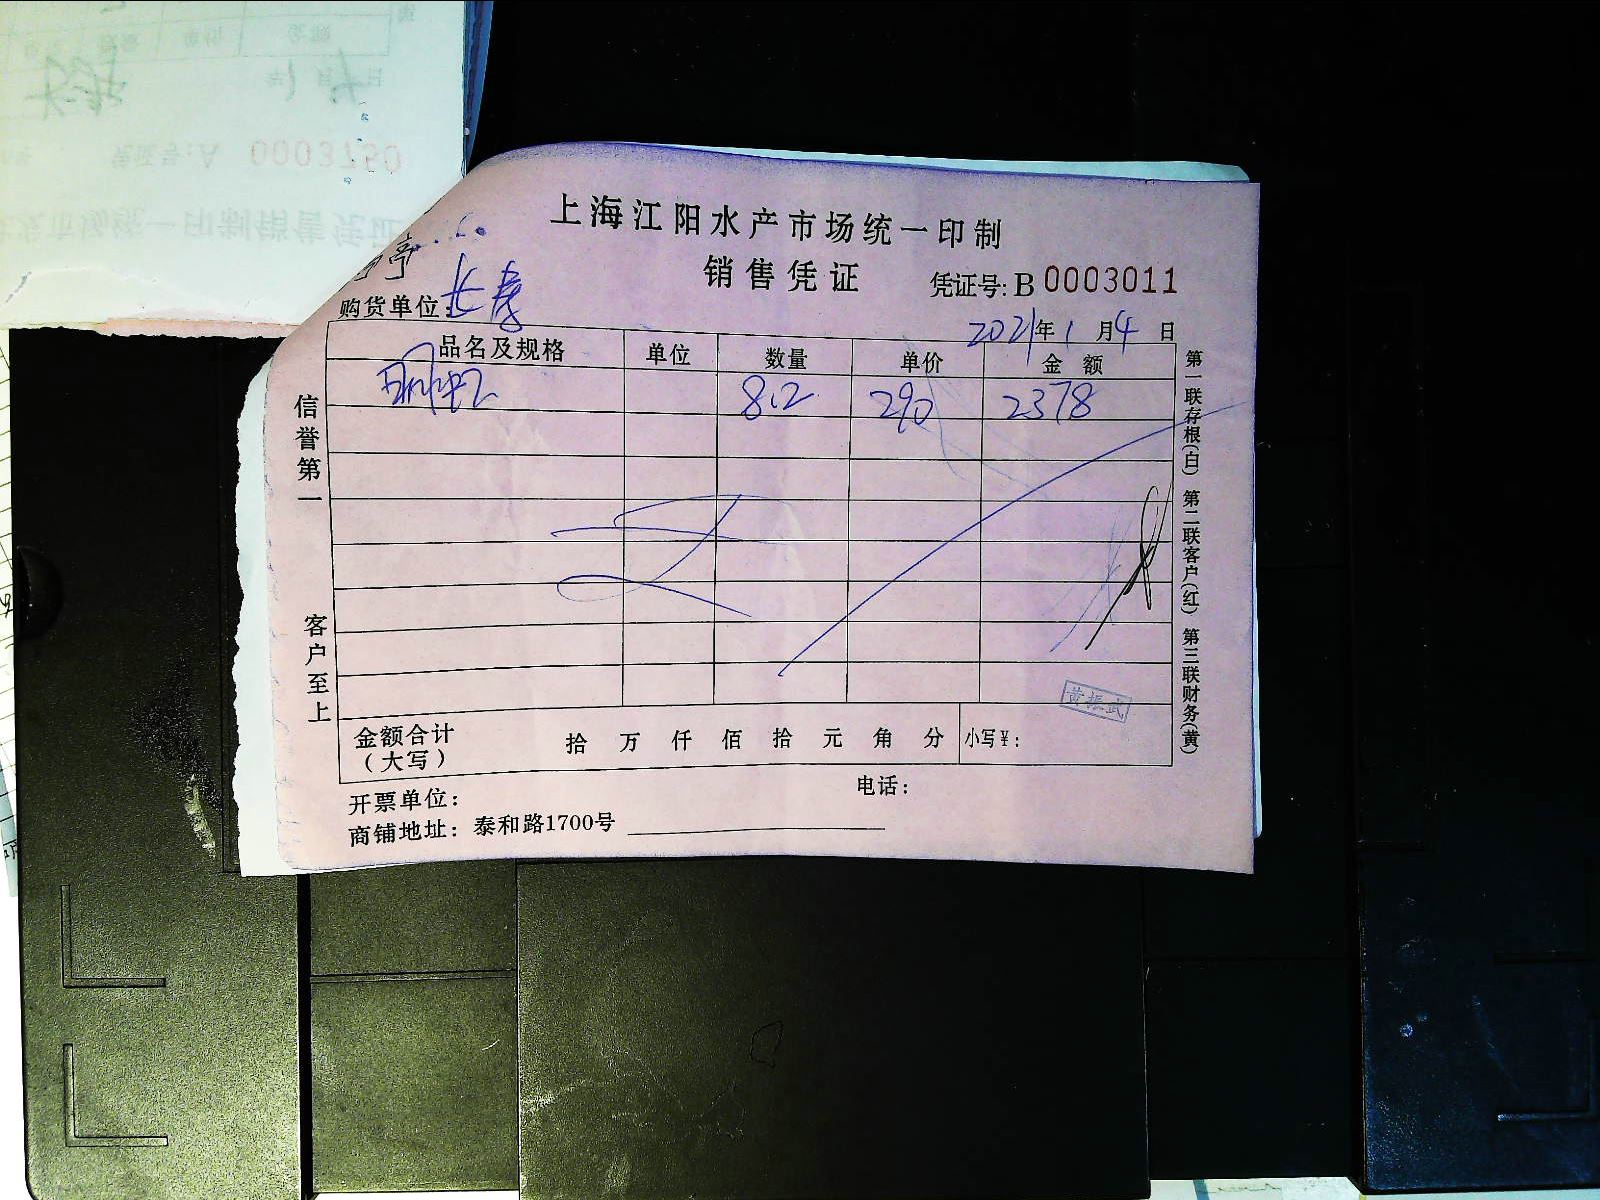 上海江阳水产市场统一印制
销售凭证
凭证号: B 0003011
购货单位: 长寿
2021年1月4日
品名及规格 单位 数量 单价 金额
明虾 8.2 290 2378
信誉第一
客户至上
第一联存根(白) 第二联客户(红) 第三联财务(黄)
黄振武
金额合计
(大写)
拾 万 仟 佰 拾 元 角 分 小写¥:
开票单位:
电话:
商铺地址: 泰和路1700号
0003750